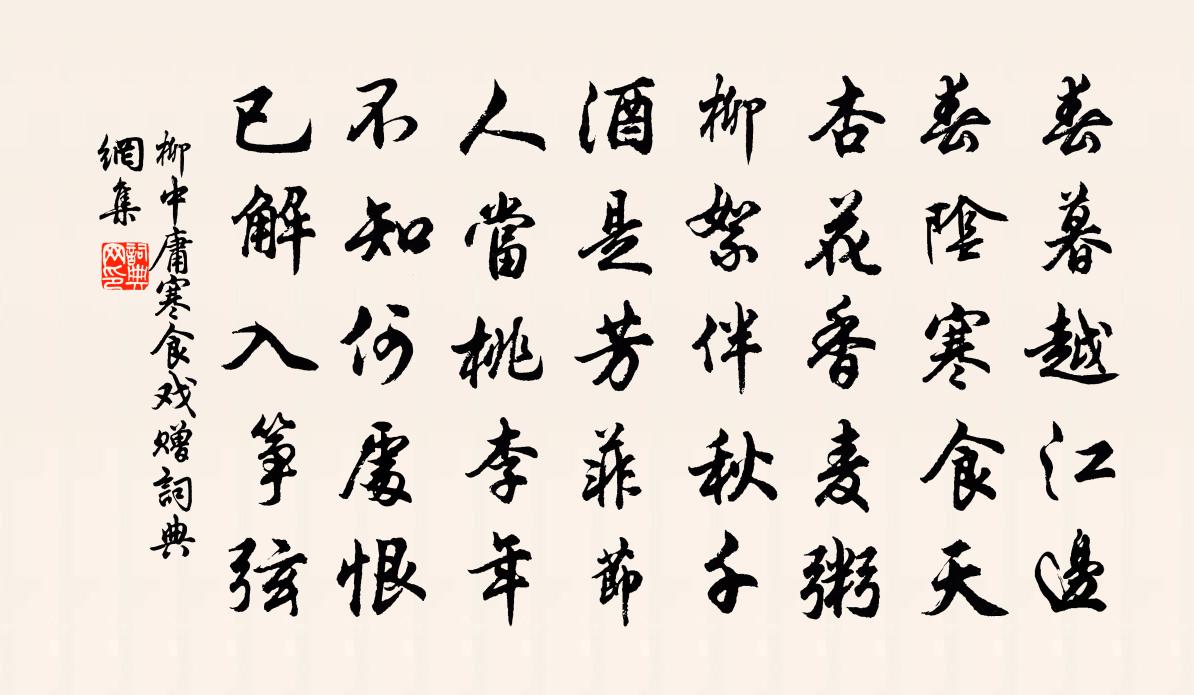 春暮越江邊
春陰寒食天
杏花香麦粥
柳絮伴秋千
酒是芳菲節
人當桃李年
不知何處恨
已解入箏弦
柳中庸寒食戏赠詞典
網集
詞典
网印